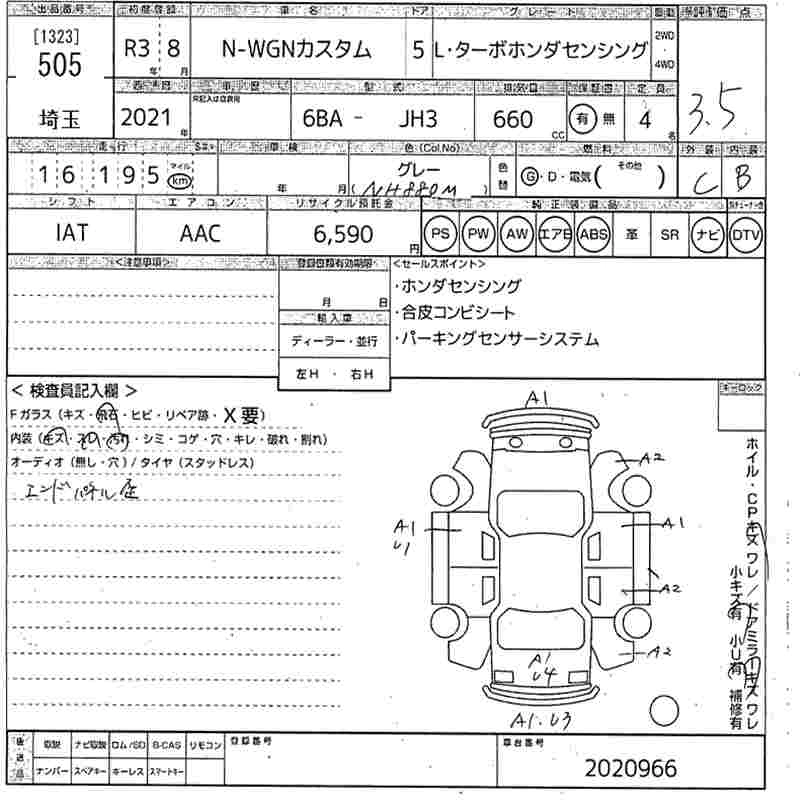 出品番号 初度登録 車名 ドア グレード 駆動 評価点
[1323]
505
R3 8 N-WGNカスタム 5 L・ターボホンダセンシング 2WD
・
4WD
年 月
車歴 型式 排気量 保証書 定員
未記入は自家用
埼玉 2021 年 6BA - JH3 660 CC 有 無 4 名 3.5
走行 車検 色(Col.No) 燃料 外装 内装
16195 マイル km 年 月 グレー (NH880M) 色替 G・D・電気( その他 ) C B
シフト エアコン リサイクル預託金 純正装備品
IAT AAC 6,590 円 PS PW AW エアB ABS 革 SR ナビ DTV
<注意事項> 登録書類有効期限 <セールスポイント>
月 日
・ホンダセンシング
輸入車
・合皮コンビシート
ディーラー・並行
・パーキングセンサーシステム
左H ・ 右H
< 検査員記入欄 > キーロック
Fガラス(キズ・飛石・ヒビ・リペア跡・X要)
内装(キズ・ソリ・汚れ・シミ・コゲ・穴・キレ・破れ・割れ)
オーディオ(無し・穴)/タイヤ(スタッドレス)
エンドパネル歪
A1
A2
A1
U1
A1
A2
A2
A1
U4
A1.U3
ホイル・CPキズ ワレ/ドアミラーキズ ワレ
小キズ有 小U有 補修有
後送品 取説 ナビ取説 ロム/SD B-CAS リモコン 登録番号 車台番号
ナンバー スペアキー キーレス スマートキー
2020966